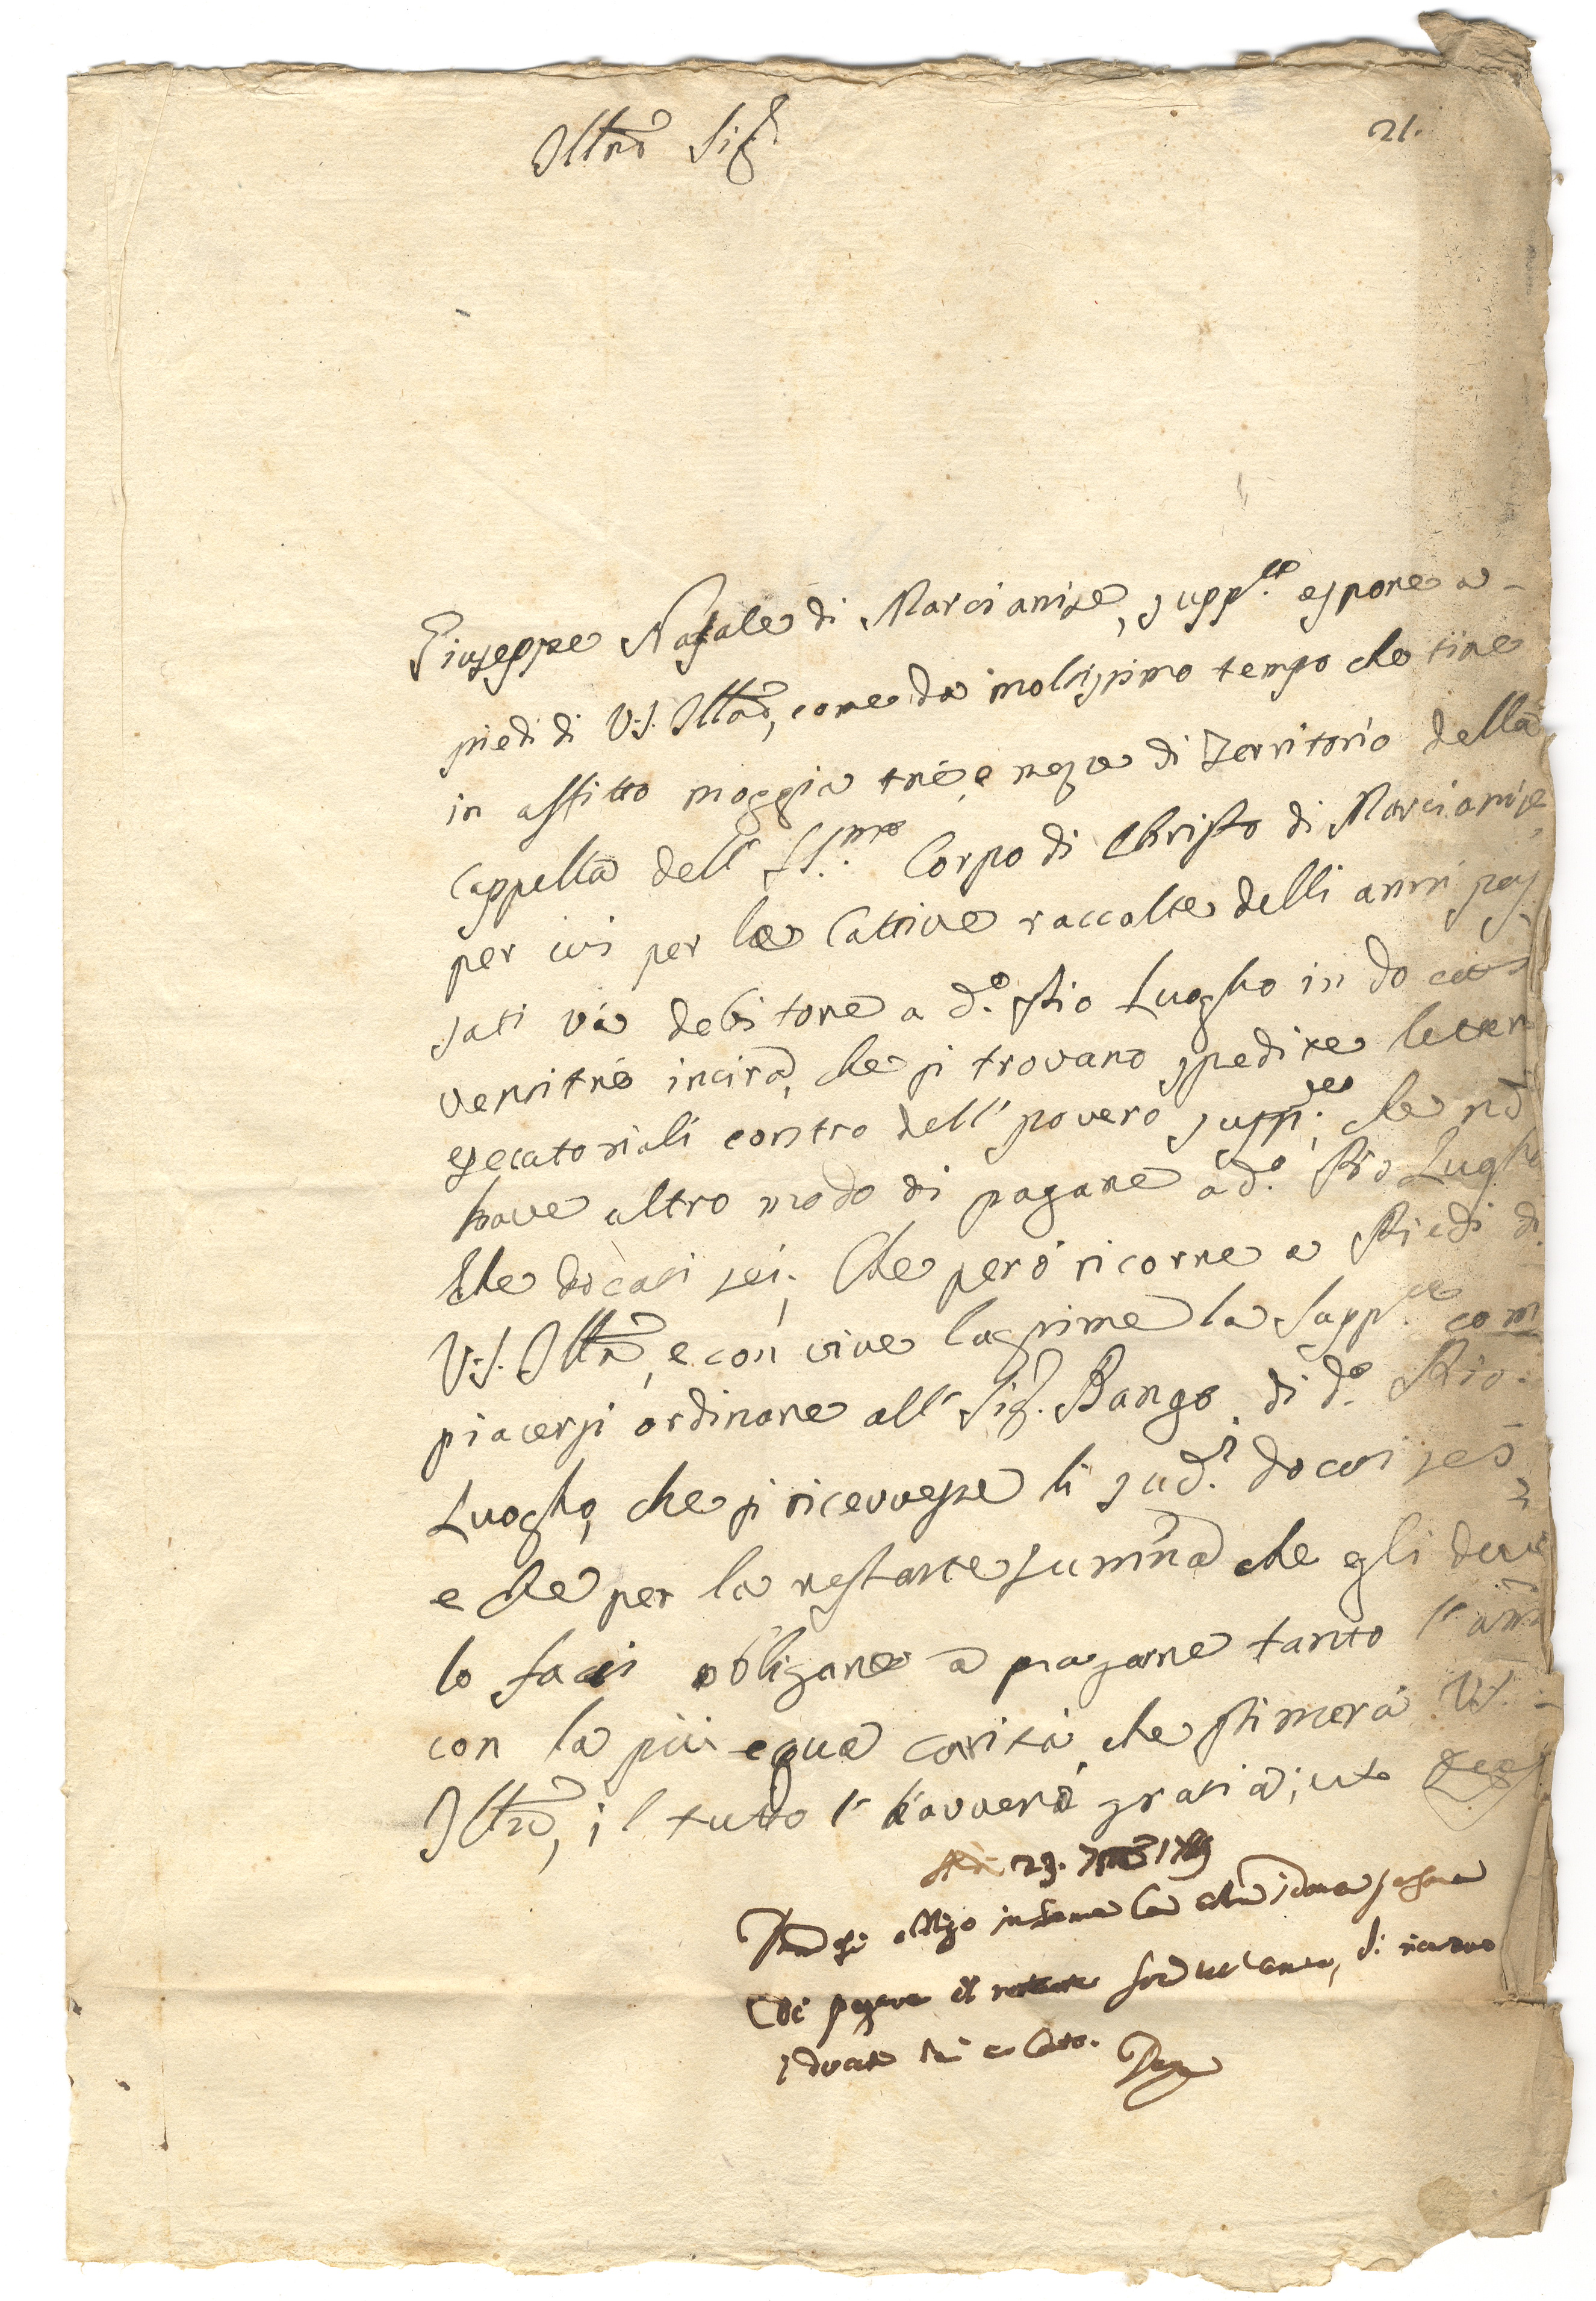 Illmo Sigre
21.
Giuseppe Natale di Marcianise, suppte espone a
piedi di V.S. Illma, come da moltissimo tempo che tine
in affitto moggia tré, e meza di Territorio della
Cappella dell' SS.mo Corpo di Christo di Marcianise
per cui per le Cattive raccolte delli anni pas
sati và debitore a d.o Pio Luogho in docati
ventitré incirca, che si trovano spedite letter
esecutoriali contro dell' povero supp.te, che nō
have altro modo di pagare à d.o Pio Luogho
che docati sei; Che però ricorre a Piedi di
V.S. Illma, e con vive lagrime la supp.ca com
piacersi ordinare all' Sig. di d.o Pio
Luogho, che si ricevesse li sud.i docati sei
e che per la restante summa che egli deve
lo facci obligare a pagare tanto l'anno
con la più equa carità che stimerà V.S.
Illma, il tutto l'haverà a gratia, ut Deus
Adi 23.
si obligo insieme
di pagare il restante l'anno, di ricevuo
i ducati sei